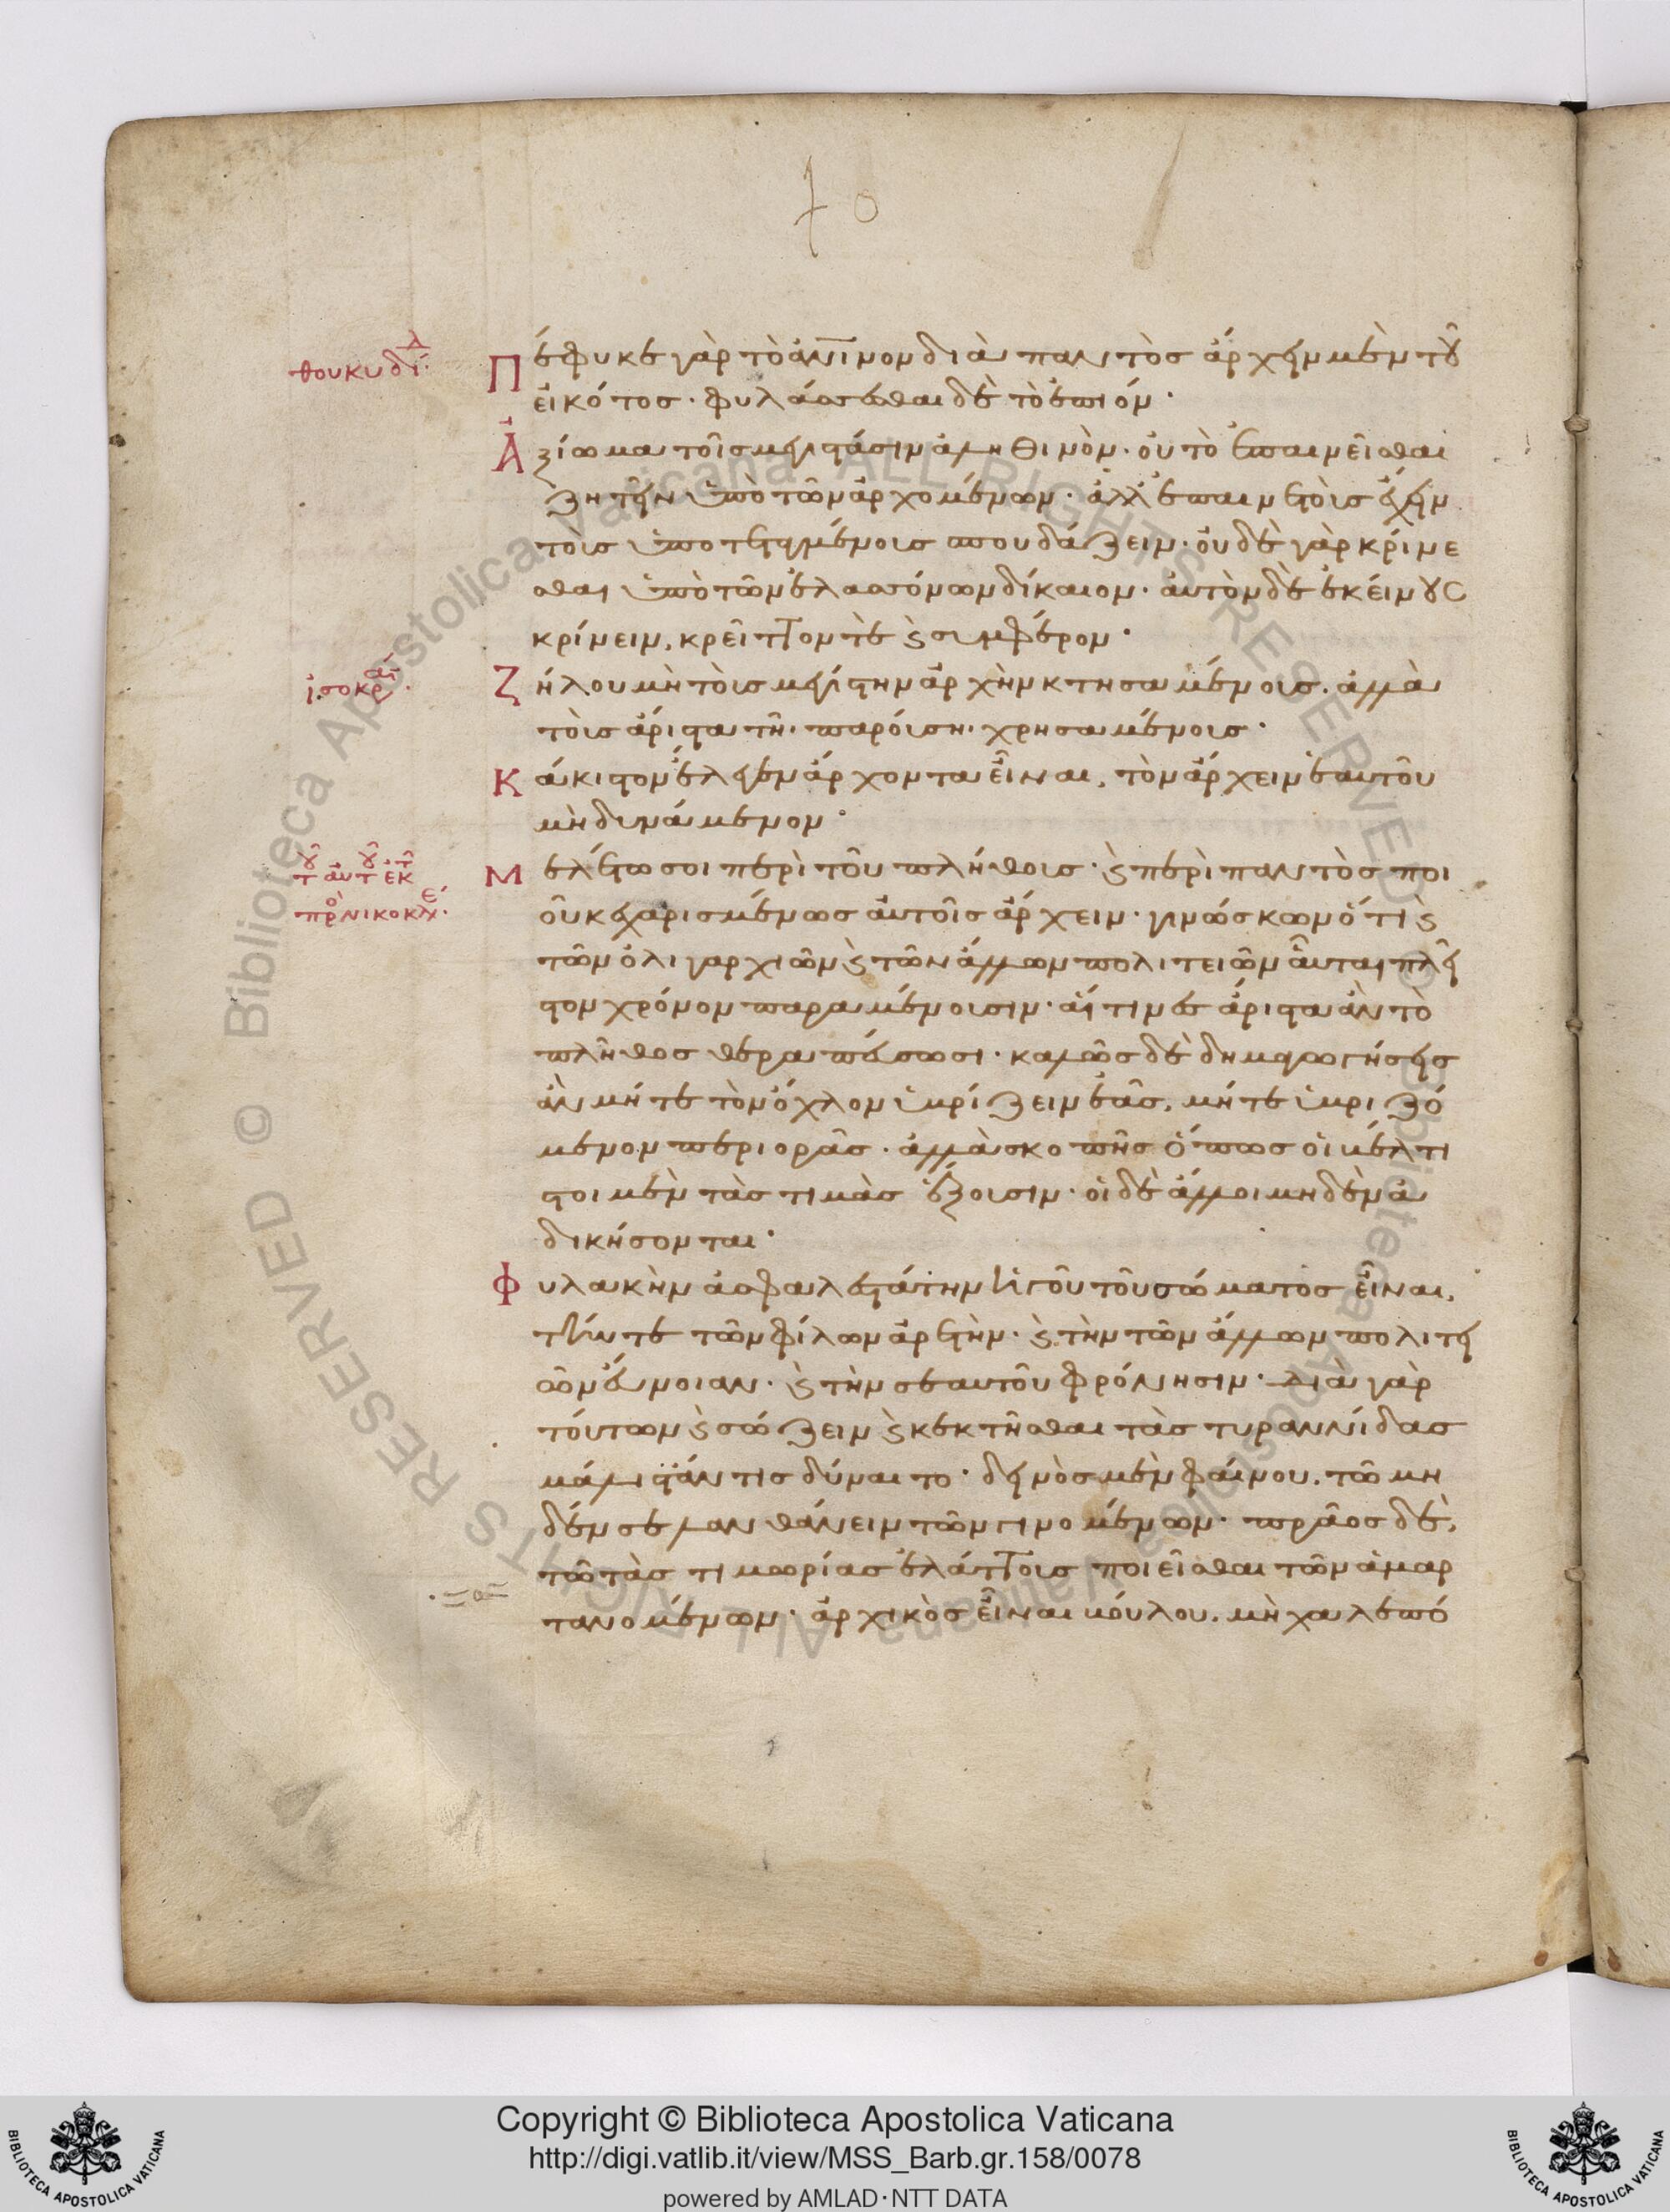 70
θουκυδί
Πέφυκε γὰρ τὸ ἀν͞ινον διὰ παντὸς ἄρχειν μὲν τοῦ
εἰκότος· φυλάσσεσθαι δὲ τὸ ἐπιόν·
Ἀξίωμα τοῖς μεγίστασιν ἀληθινὸν· οὐ τὸ ἐπαινεῖσθαι
ζητεῖν ὑπὸ τῶν ἀρχομένων· ἀλλ' ἐπαινετοὺς ἔχειν
τοὺς ὑποτεταγμένους σπουδάζειν· οὐδὲ γὰρ κρίνε
σθαι ὑπὸ τῶν ἐλασσόνων δίκαιον· αὐτὸν δὲ ἐκείνους
κρίνειν, κρεῖττόν τε ϗ συμφέρον·
ἰσοκρατ
Ζήλου μὴ τοὺς μεγίστην ἀρχὴν κτησαμένους· ἀλλὰ
τοὺς ἄριστα τῆ παρούση χρησαμένους·
Κάκιστον ἔλεγεν ἄρχοντα εἶναι, τὸν ἄρχειν ἑαυτοῦ
μὴ δυνάμενον·
τοῦ αὐτοῦ ἐκ τ
πρὸ νικοκλέ
Μελέτω σοι περὶ τοῦ πλήθους· ϗ περὶ παντὸς ποι
οῦ κεχαρισμένως αὐτοῖς ἄρχειν· γινώσκων ὅτι ϗ
τῶν ὀλιγαρχιῶν ϗ τῶν ἄλλων πολιτειῶν αὗται πλεῖ
στον χρόνον παραμένουσιν· αἵτινες ἄριστα ἂν τὸ
πλῆθος θεραπεύσωσι· καλῶς δὲ δημαγωγήσεις
ἂν μήτε τὸν ὄχλον ὑβρίζειν ἐᾶς, μήτε ὑβριζό
μενον περιορᾶς· ἀλλὰ σκοπῆς ὅπως οἱ βέλτι
στοι μὲν τὰς τιμὰς ἕξουσιν· οἱ δὲ ἄλλοι μηδὲν ἀ
δικήσονται·
Φυλακὴν ἀσφαλεστάτην ἡγοῦ τοῦ σώματος εἶναι,
τήν τε τῶν φίλων ἀρετὴν· ϗ τὴν τῶν ἄλλων πολιτει
ῶν εὔνοιαν· ϗ τὴν σεαυτοῦ φρόνησιν· διὰ γὰρ
τούτων ϗ σώζειν ϗ κεκτῆσθαι τὰς τυραννίδας
μάλιστ' ἄν τις δύναιτο· δεινὸς μὲν φαίνου. τῶ μη
δέν σε λανθάνειν τῶν γινομένων· πρᾶος δὲ,
τῶ τὰς τιμωρίας ἐλάττους ποιεῖσθαι τῶν ἁμαρ
τανομένων· ἀρχικὸς εἶναι βούλου. μὴ χαλεπό